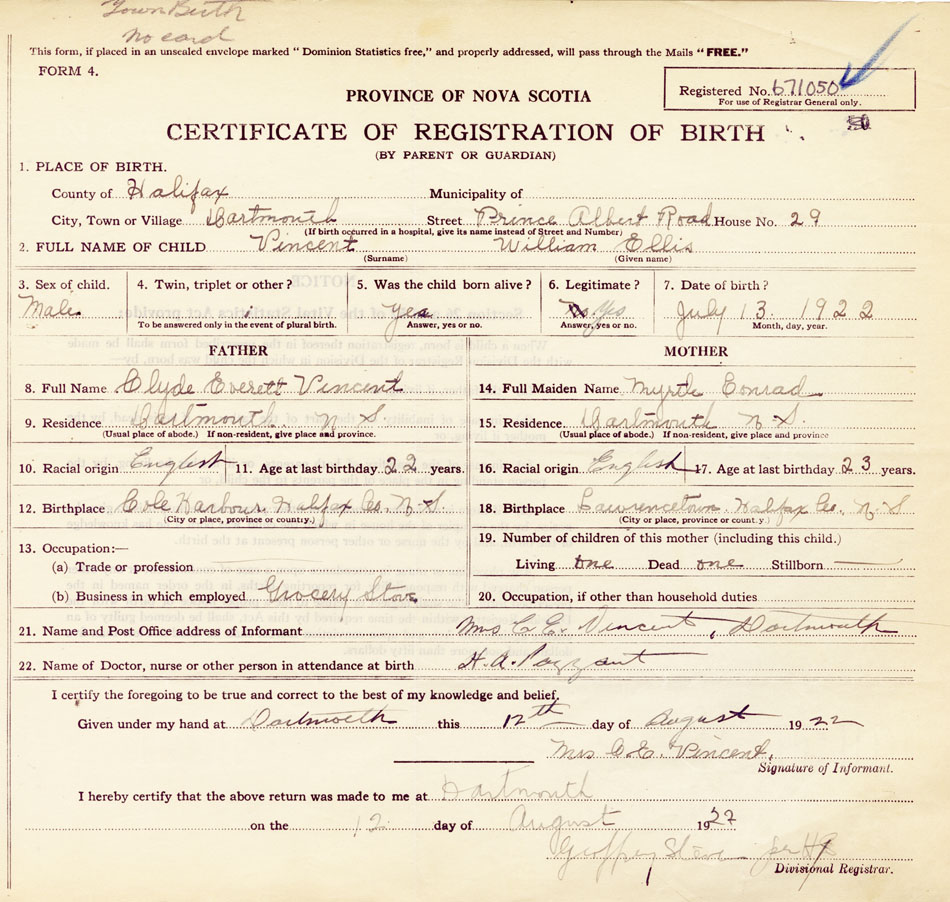 Town Birth
no card
This form, if placed in an unsealed envelope marked "Dominion Statistics free," and properly addressed, will pass through the Mails "FREE."
FORM 4.
Registered No. 671050
For use of Registrar General only.
PROVINCE OF NOVA SCOTIA
CERTIFICATE OF REGISTRATION OF BIRTH
(BY PARENT OR GUARDIAN)
1. PLACE OF BIRTH.
County of Halifax Municipality of
City, Town or Village Dartmouth Street Prince Albert Road House No. 29
(If birth occurred in a hospital, give its name instead of Street and Number)
2. FULL NAME OF CHILD Vincent William Ellis
(Surname) (Given name)
3. Sex of child. 4. Twin, triplet or other? 5. Was the child born alive? 6. Legitimate? 7. Date of birth?
Male 1 yes Yes July 13. 1922
To be answered only in the event of plural birth. Answer, yes or no. Answer, yes or no. Month, day, year.
FATHER MOTHER
8. Full Name Clyde Everett Vincent 14. Full Maiden Name Myrtle Conrad
9. Residence Dartmouth N S 15. Residence Dartmouth N S.
(Usual place of abode.) If non-resident, give place and province. (Usual place of abode.) If non-resident, give place and province
10. Racial origin English 11. Age at last birthday 22 years. 16. Racial origin English 17. Age at last birthday 23 years.
12. Birthplace Cole Harbour Halifax Co. N.S. 18. Birthplace Lawrencetown Halifax Co. N. S
(City or place, province or country.) (City or place, province or country.)
13. Occupation:— 19. Number of children of this mother (including this child.)
(a) Trade or profession Living one Dead one Stillborn —
(b) Business in which employed Grocery Store 20. Occupation, if other than household duties
21. Name and Post Office address of Informant Mrs C. E. Vincent, Dartmouth
22. Name of Doctor, nurse or other person in attendance at birth H. A. Payzant
I certify the foregoing to be true and correct to the best of my knowledge and belief.
Given under my hand at Dartmouth this 12th day of August 1922
Mrs C. E. Vincent.
Signature of Informant.
I hereby certify that the above return was made to me at Dartmouth
on the 12 day of August 1922
Geoffrey
Divisional Registrar.